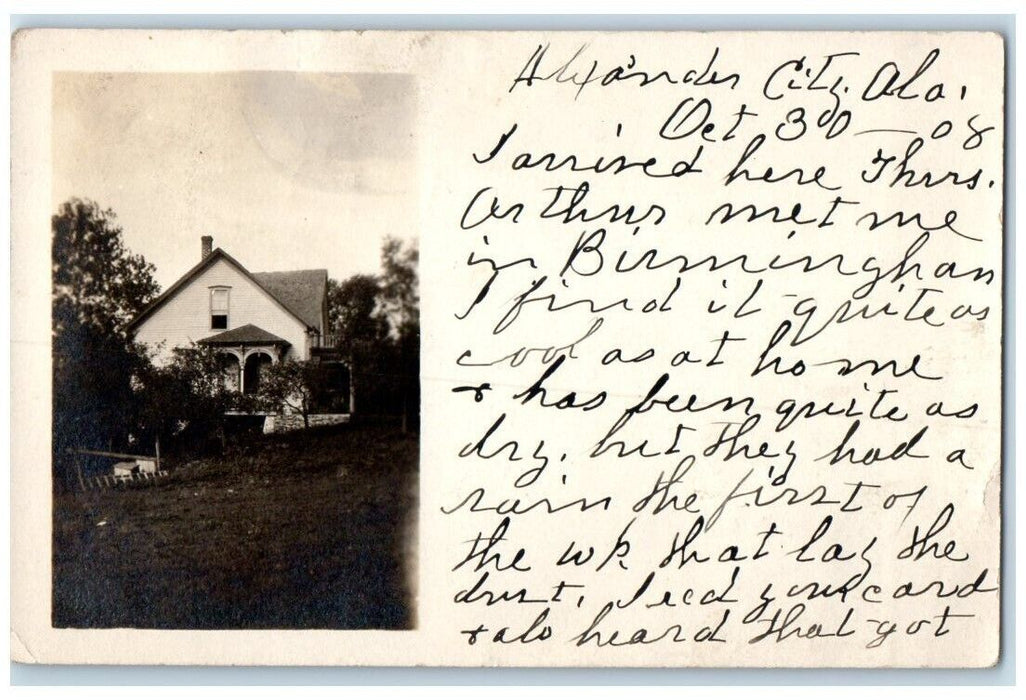 Alexander City, Ala.
Oct 30 - 08
I arrived here Thurs.
Arthur met me
in Birmingham
I find it quite as
cool as at home
& has been quite as
dry. but they had a
rain the first of
the wk that lay the
dust. I recd your card
& also heard that got